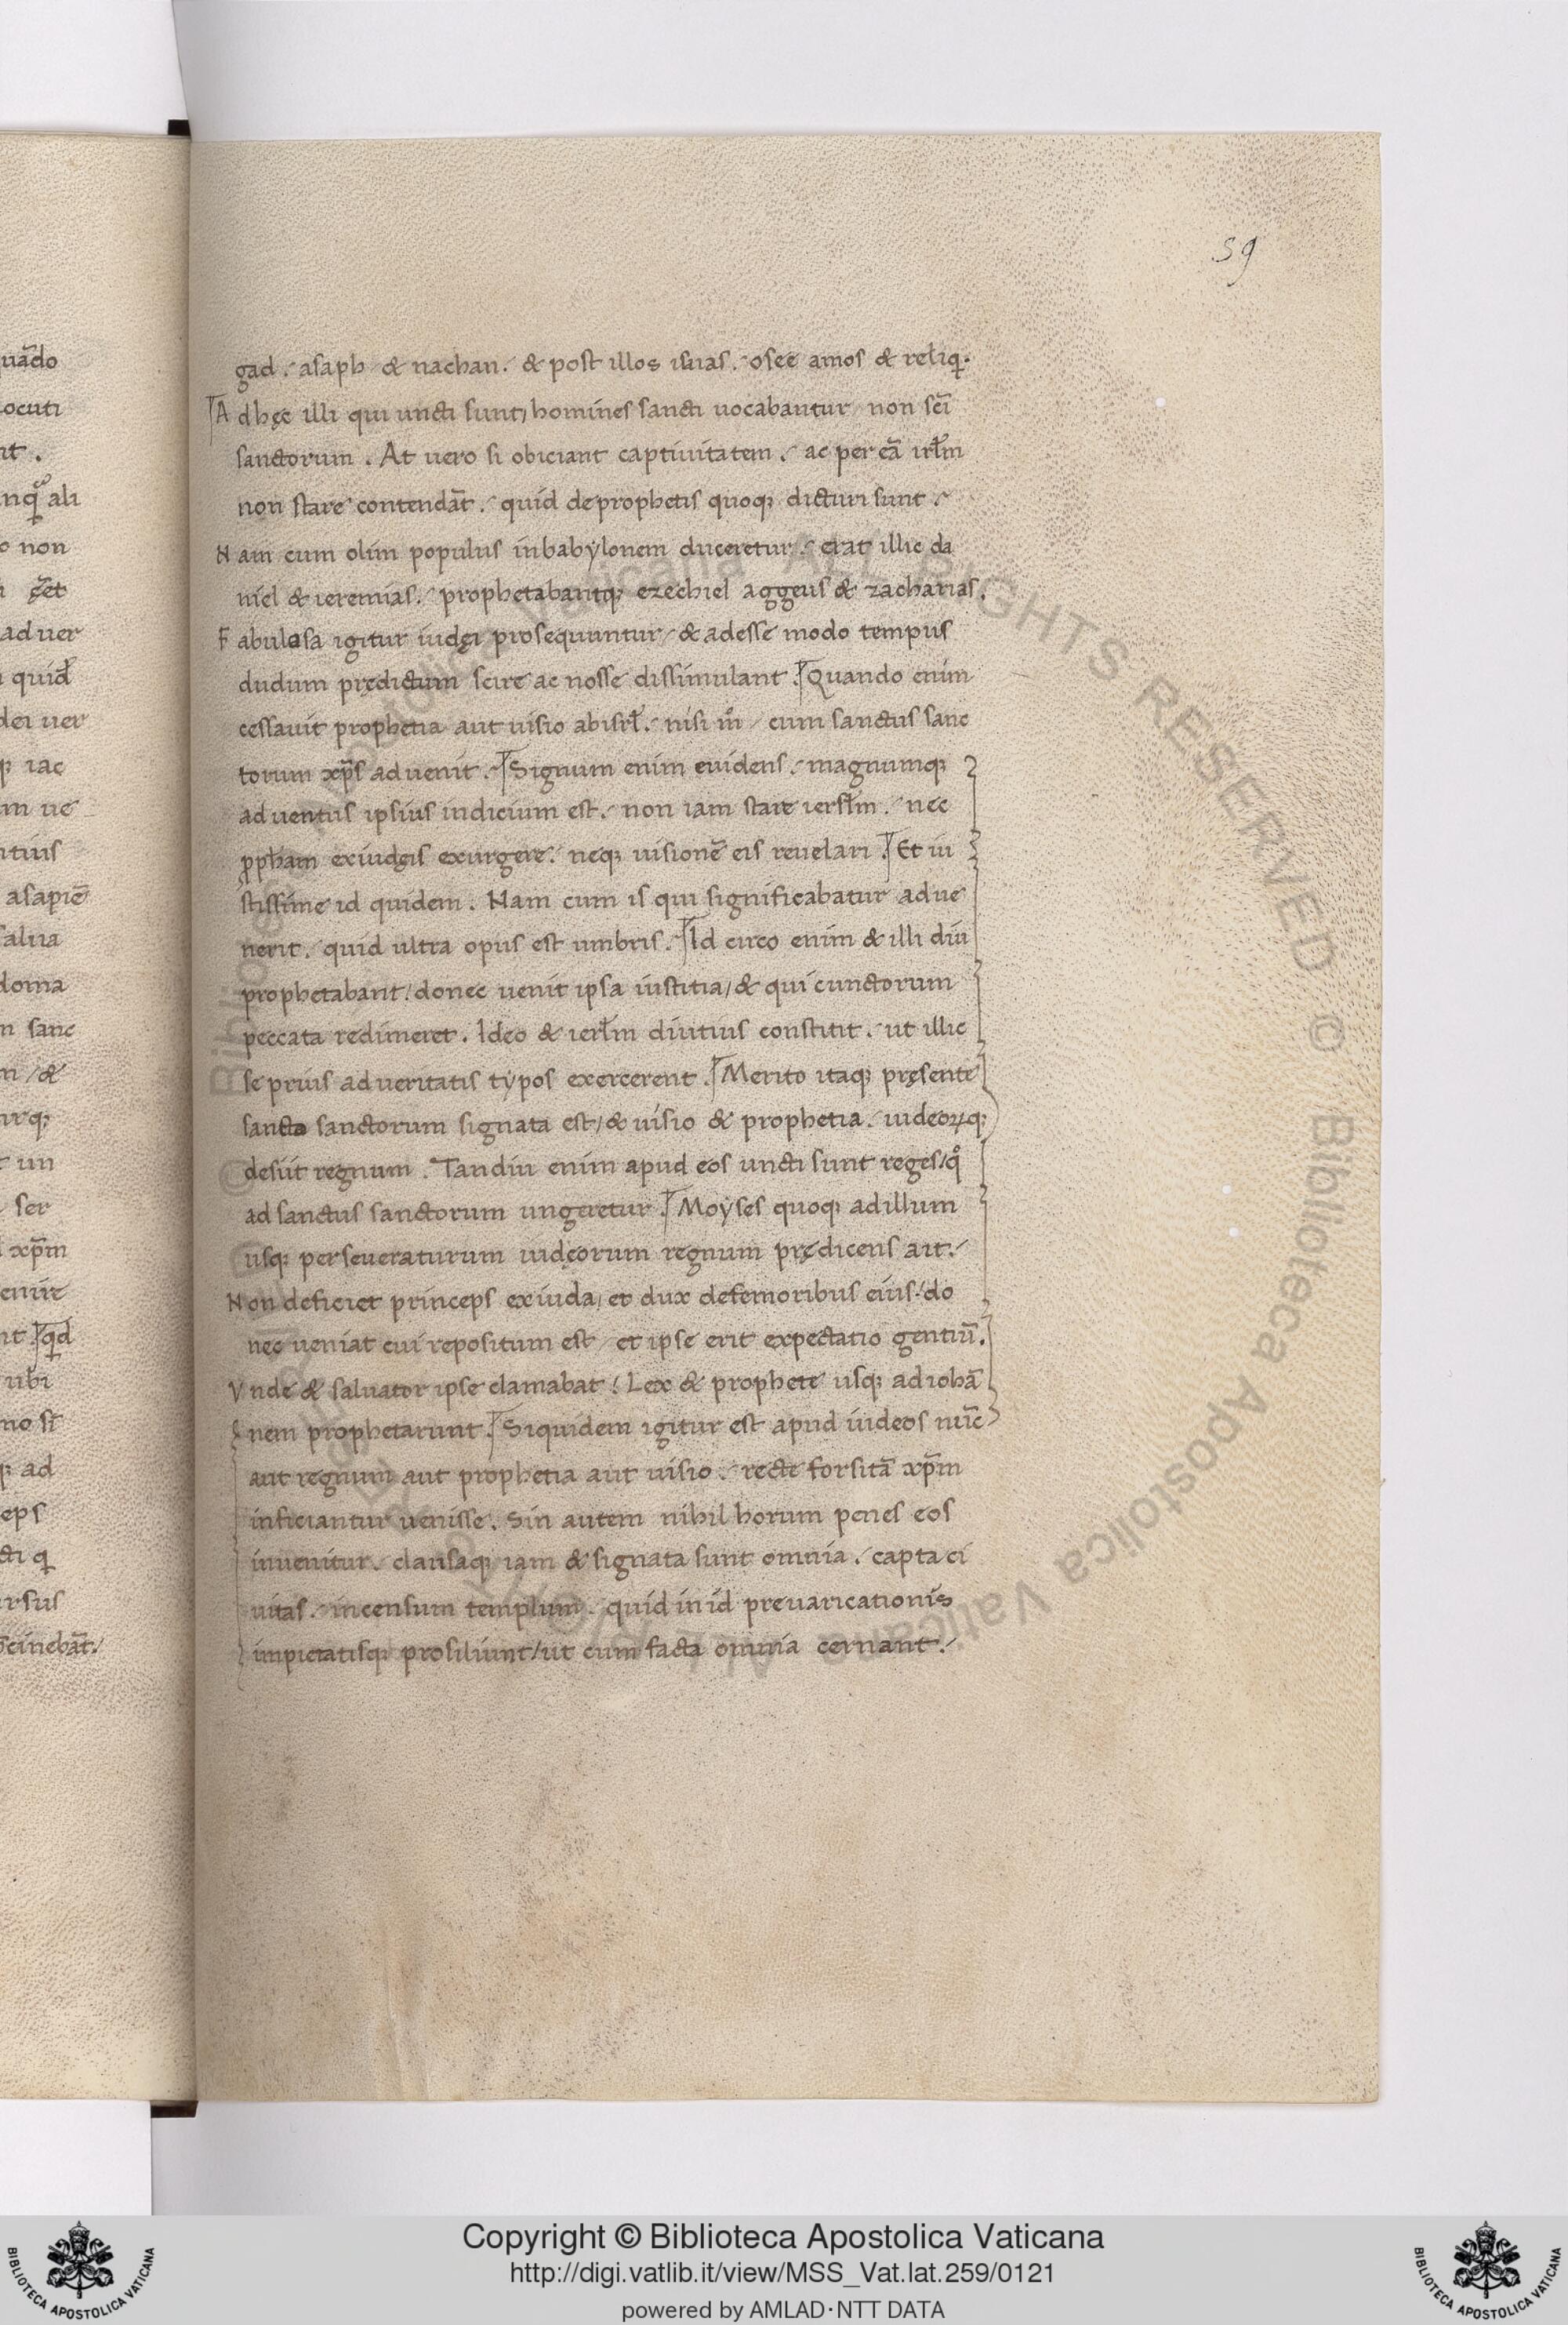 59
gad. asaph & nachan. & post illos isaias. osee amos & reliq̨.
Ad hęc illi qui uncti sunt, homines sancti uocabantur non sc̄i
sanctorum. At uero si obiciant captiuitatem. ac per eā irl̄m
non stare contendāt. quid de prophetis quoq; dicturi sunt.
Nam cum olim populus in babẏlonem duceretur. erat illic da
niel & ieremias. prophetabantq; ezechiel aggeus & zacharias.
Fabulosa igitur iudęi prosequuntur / & adesse modo tempus
dudum prędictum scire ac nosse dissimulant. Quando enim
cessauit prophetia aut uisio ab isrl̄. nisi m̊ / cum sanctus sanc
torum xp̄s aduenit. Signum enim euidens. magnumq;
aduentus ipsius indicium est. non iam stare iersl̄m. nec
ꝓpham ex iudęis exurgere. neq; uisionē eis reuelari. Et iu
stissime id quidem. Nam cum is qui significabatur adue
nerit. quid ultra opus est umbris. Id circo enim & illi diu
prophetabant / donec uenit ipsa iustitia / & qui cunctorum
peccata redimeret. Ideo & ierl̄m diutius constitit. ut illic
se prius ad ueritatis tẏpos exercerent. Merito itaq; pręsente
sancto sanctorum signata est / & uisio & prophetia. iudeoꝝq;
desiit regnum. Tandiu enim apud eos uncti sunt reges / q̊
ad sanctus sanctorum ungeretur. Moẏses quoq; ad illum
usq; perseueraturum iudęorum regnum prędicens ait.
Non deficiet princeps ex iuda, et dux de femoribus eius. do
nec ueniat cui repositum est / et ipse erit expectatio gentiū.
Vnde & saluator ipse clamabat. Lex & prophete usq; ad iohā
nem prophetarunt. Siquidem igitur est apud iudeos nūc
aut regnum aut prophetia aut uisio. recte forsitā xp̄m
inficiantur uenisse. Sin autem nihil horum penes eos
inuenitur. clausaq; iam & signata sunt omnia. capta ci
uitas. incensum templum. quid in id preuaricationis
impietatisq; prosiliunt / ut cum facta omnia cernant.
uādo
ocuti
nt.
ali
o non
ad uer
dei uer
iac
m ue
ntius
asapiē
salua
doma
m sanc
/ &
urq;
un
ser
xp̄m
enire
ubi
ad
eps
rsus
cinebāt.
© Biblioteca Apostolica Vaticana ALL RIGHTS RESERVED © Biblioteca Apostolica Vaticana ALL RIGHTS RESERVED
Copyright © Biblioteca Apostolica Vaticana
http://digi.vatlib.it/view/MSS_Vat.lat.259/0121
powered by AMLAD·NTT DATA
BIBLIOTECA APOSTOLICA VATICANA
BIBLIOTECA APOSTOLICA VATICANA